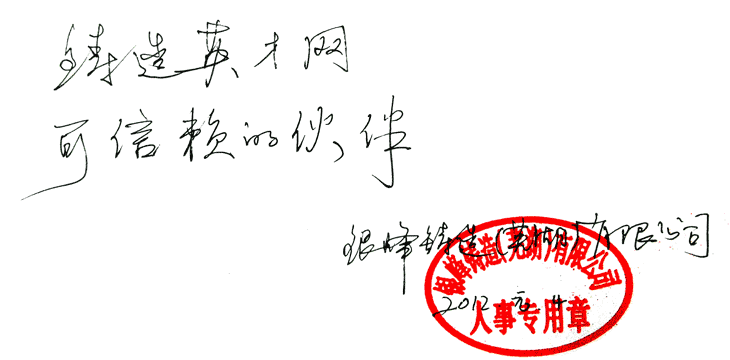 铸造英才网
可信赖的伙伴
银峰铸造(芜湖)有限公司
银峰铸造(芜湖)有限公司
2012
人事专用章